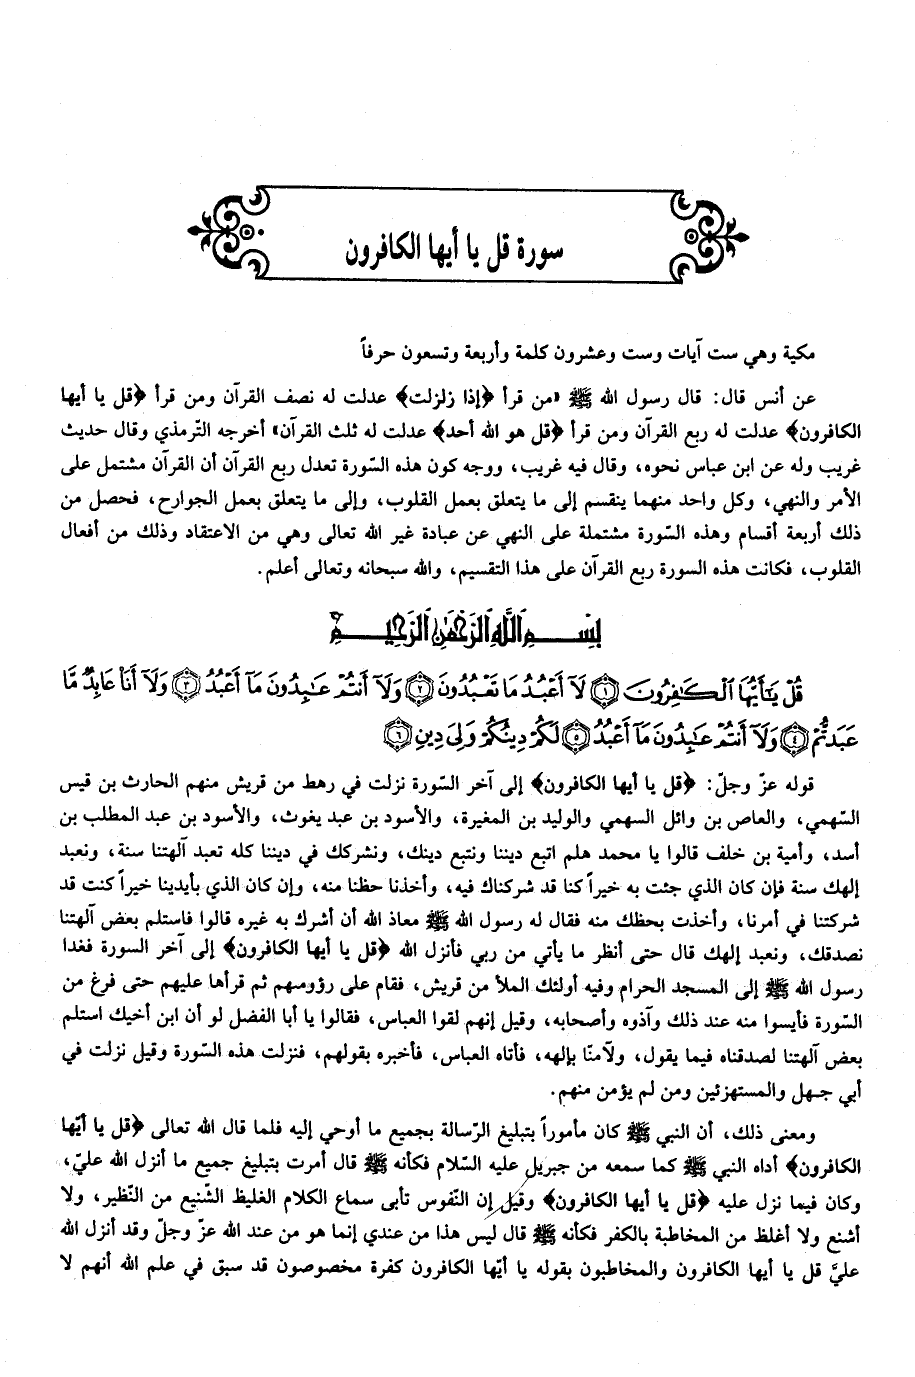 سورة قل يا أيها الكافرون
مكية وهي ست آيات وست وعشرون كلمة وأربعة وتسعون حرفاً
عن أنس قال: قال رسول الله ﷺ «من قرأ ﴿إذا زلزلت﴾ عدلت له نصف القرآن ومن قرأ ﴿قل يا أيها
الكافرون﴾ عدلت له ربع القرآن ومن قرأ ﴿قل هو الله أحد﴾ عدلت له ثلث القرآن» أخرجه التّرمذي وقال حديث
غريب وله عن ابن عباس نحوه، وقال فيه غريب، ووجه كون هذه السّورة تعدل ربع القرآن أن القرآن مشتمل على
الأمر والنهي، وكل واحد منهما ينقسم إلى ما يتعلق بعمل القلوب، وإلى ما يتعلق بعمل الجوارح، فحصل من
ذلك أربعة أقسام وهذه السّورة مشتملة على النهي عن عبادة غير الله تعالى وهي من الاعتقاد وذلك من أفعال
القلوب، فكانت هذه السورة ربع القرآن على هذا التقسيم، والله سبحانه وتعالى أعلم.
بِسْمِ اللَّهِ الرَّحْمَٰنِ الرَّحِيمِ
قُلْ يَٰٓأَيُّهَا ٱلْكَٰفِرُونَ ﴿١﴾ لَآ أَعْبُدُ مَا تَعْبُدُونَ ﴿٢﴾ وَلَآ أَنتُمْ عَٰبِدُونَ مَآ أَعْبُدُ ﴿٣﴾ وَلَآ أَنَا۠ عَابِدٌ مَّا
عَبَدتُّمْ ﴿٤﴾ وَلَآ أَنتُمْ عَٰبِدُونَ مَآ أَعْبُدُ ﴿٥﴾ لَكُمْ دِينُكُمْ وَلِىَ دِينِ ﴿٦﴾
قوله عزّ وجلّ: ﴿قل يا أيها الكافرون﴾ إلى آخر السّورة نزلت في رهط من قريش منهم الحارث بن قيس
السّهمي، والعاص بن وائل السهمي والوليد بن المغيرة، والأسود بن عبد يغوث، والأسود بن عبد المطلب بن
أسد، وأمية بن خلف قالوا يا محمد هلم اتبع ديننا ونتبع دينك، ونشركك في ديننا كله تعبد آلهتنا سنة، ونعبد
إلهك سنة فإن كان الذي جئت به خيراً كنا قد شركناك فيه، وأخذنا حظنا منه، وإن كان الذي بأيدينا خيراً كنت قد
شركتنا في أمرنا، وأخذت بحظك منه فقال له رسول الله ﷺ معاذ الله أن أشرك به غيره قالوا فاستلم بعض آلهتنا
نصدقك، ونعبد إلهك قال حتى أنظر ما يأتي من ربي فأنزل الله ﴿قل يا أيها الكافرون﴾ إلى آخر السورة فغدا
رسول الله ﷺ إلى المسجد الحرام وفيه أولئك الملأ من قريش، فقام على رؤوسهم ثم قرأها عليهم حتى فرغ من
السّورة فأيسوا منه عند ذلك وآذوه وأصحابه، وقيل إنهم لقوا العباس، فقالوا يا أبا الفضل لو أن ابن أخيك استلم
بعض آلهتنا لصدقناه فيما يقول، ولآمنّا بإلهه، فأتاه العباس، فأخبره بقولهم، فنزلت هذه السّورة وقيل نزلت في
أبي جهل والمستهزئين ومن لم يؤمن منهم.
ومعنى ذلك، أن النبي ﷺ كان مأموراً بتبليغ الرّسالة بجميع ما أوحي إليه فلما قال الله تعالى ﴿قل يا أيّها
الكافرون﴾ أداه النبي ﷺ كما سمعه من جبريل عليه السّلام فكأنه ﷺ قال أمرت بتبليغ جميع ما أنزل الله عليّ،
وكان فيما نزل عليه ﴿قل يا أيها الكافرون﴾ وقيل إن النّفوس تأبى سماع الكلام الغليظ الشّنيع من النّظير، ولا
أشنع ولا أغلظ من المخاطبة بالكفر فكأنه ﷺ قال ليس هذا من عندي إنما هو من عند الله عزّ وجلّ وقد أنزل الله
عليَّ قل يا أيها الكافرون والمخاطبون بقوله يا أيّها الكافرون كفرة مخصوصون قد سبق في علم الله أنهم لا